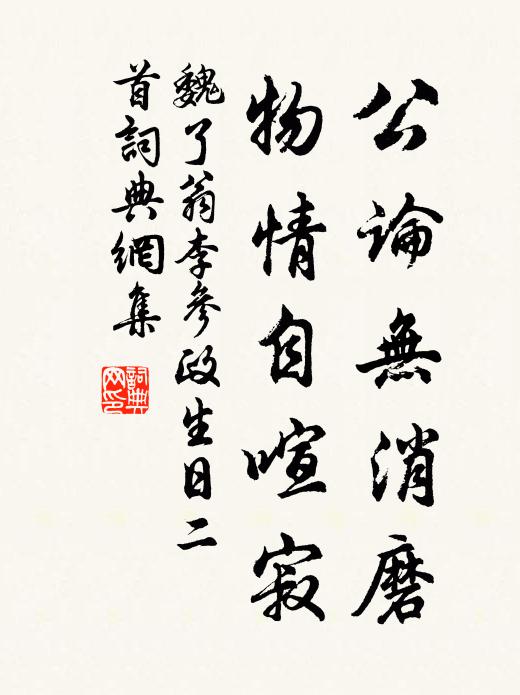 公論無消磨
物情自喧寂
魏了翁李參政生日二
首詞典網集
詞典
网印